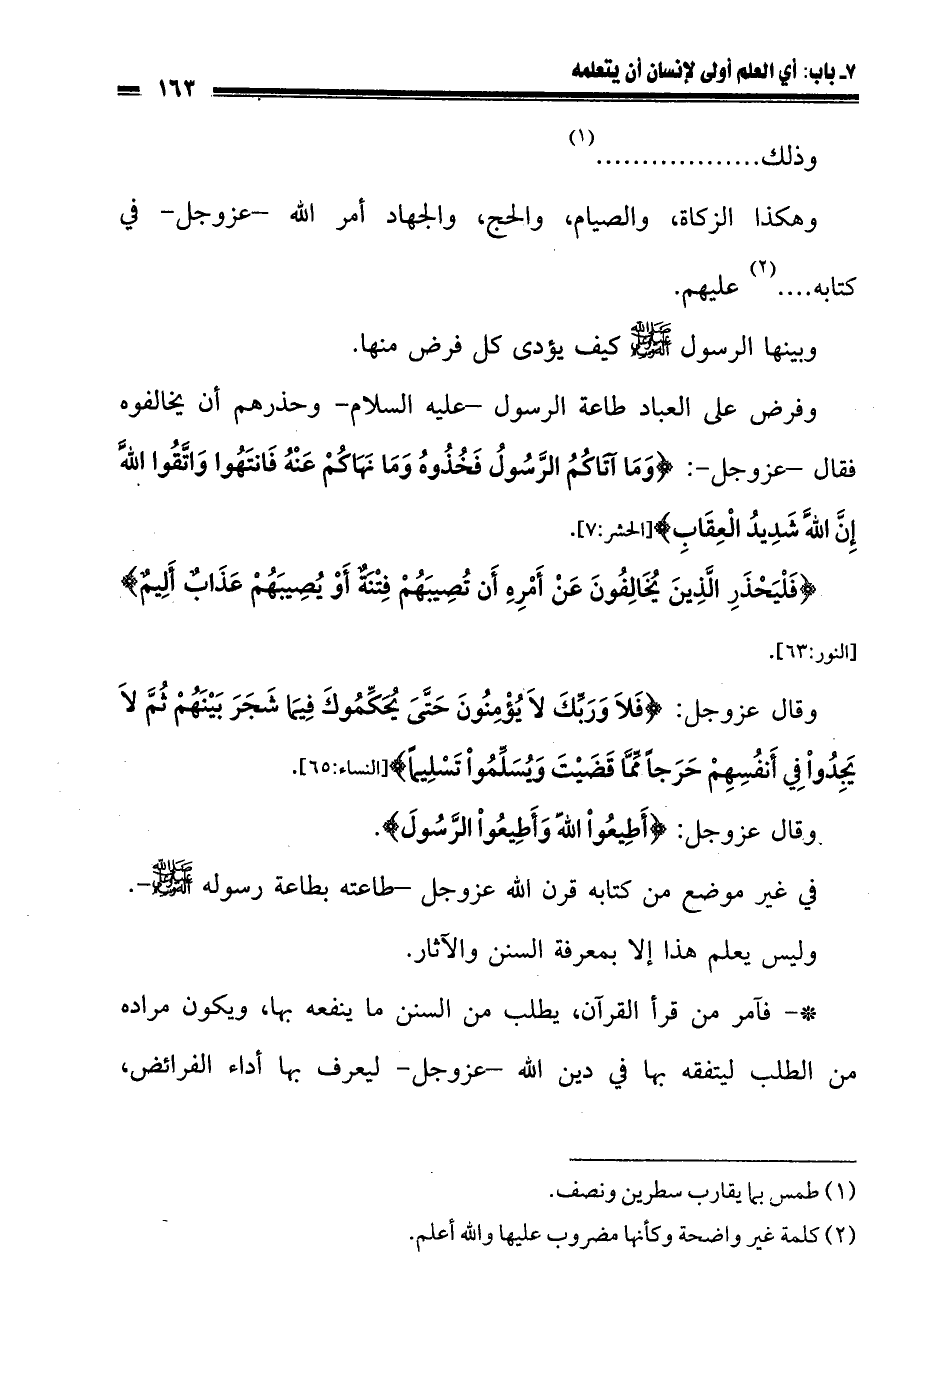 ٧ـ باب: أي العلم أولى لإنسان أن يتعلمه
١٦٣
وذلك..................(١)
وهكذا الزكاة، والصيام، والحج، والجهاد أمر الله –عزوجل– في
كتابه....(٢) عليهم.
وبينها الرسول ﷺ كيف يؤدى كل فرض منها.
وفرض على العباد طاعة الرسول –عليه السلام– وحذرهم أن يخالفوه
فقال –عزوجل–: ﴿وَمَا آتَاكُمُ الرَّسُولُ فَخُذُوهُ وَمَا نَهَاكُمْ عَنْهُ فَانتَهُوا وَاتَّقُوا اللهَّ
إِنَّ اللهَّ شَدِيدُ الْعِقَابِ﴾[الحشر:٧].
﴿فَلْيَحْذَرِ الَّذِينَ يُخَالِفُونَ عَنْ أَمْرِهِ أَن تُصِيبَهُمْ فِتْنَةٌ أَوْ يُصِيبَهُمْ عَذَابٌ أَلِيمٌ﴾
[النور:٦٣].
وقال عزوجل: ﴿فَلاَ وَرَبِّكَ لاَ يُؤْمِنُونَ حَتَّىَ يُحَكِّمُوكَ فِيمَا شَجَرَ بَيْنَهُمْ ثُمَّ لاَ
يَجِدُواْ فِي أَنفُسِهِمْ حَرَجاً مِّمَّا قَضَيْتَ وَيُسَلِّمُواْ تَسْلِيماً﴾[النساء:٦٥].
وقال عزوجل: ﴿أَطِيعُواْ اللهَّ وَأَطِيعُواْ الرَّسُولَ﴾.
في غير موضع من كتابه قرن الله عزوجل –طاعته بطاعة رسوله ﷺ–.
وليس يعلم هذا إلا بمعرفة السنن والآثار.
*– فآمر من قرأ القرآن، يطلب من السنن ما ينفعه بها، ويكون مراده
من الطلب ليتفقه بها في دين الله –عزوجل– ليعرف بها أداء الفرائض،
(١) طمس بما يقارب سطرين ونصف.
(٢) كلمة غير واضحة وكأنها مضروب عليها والله أعلم.